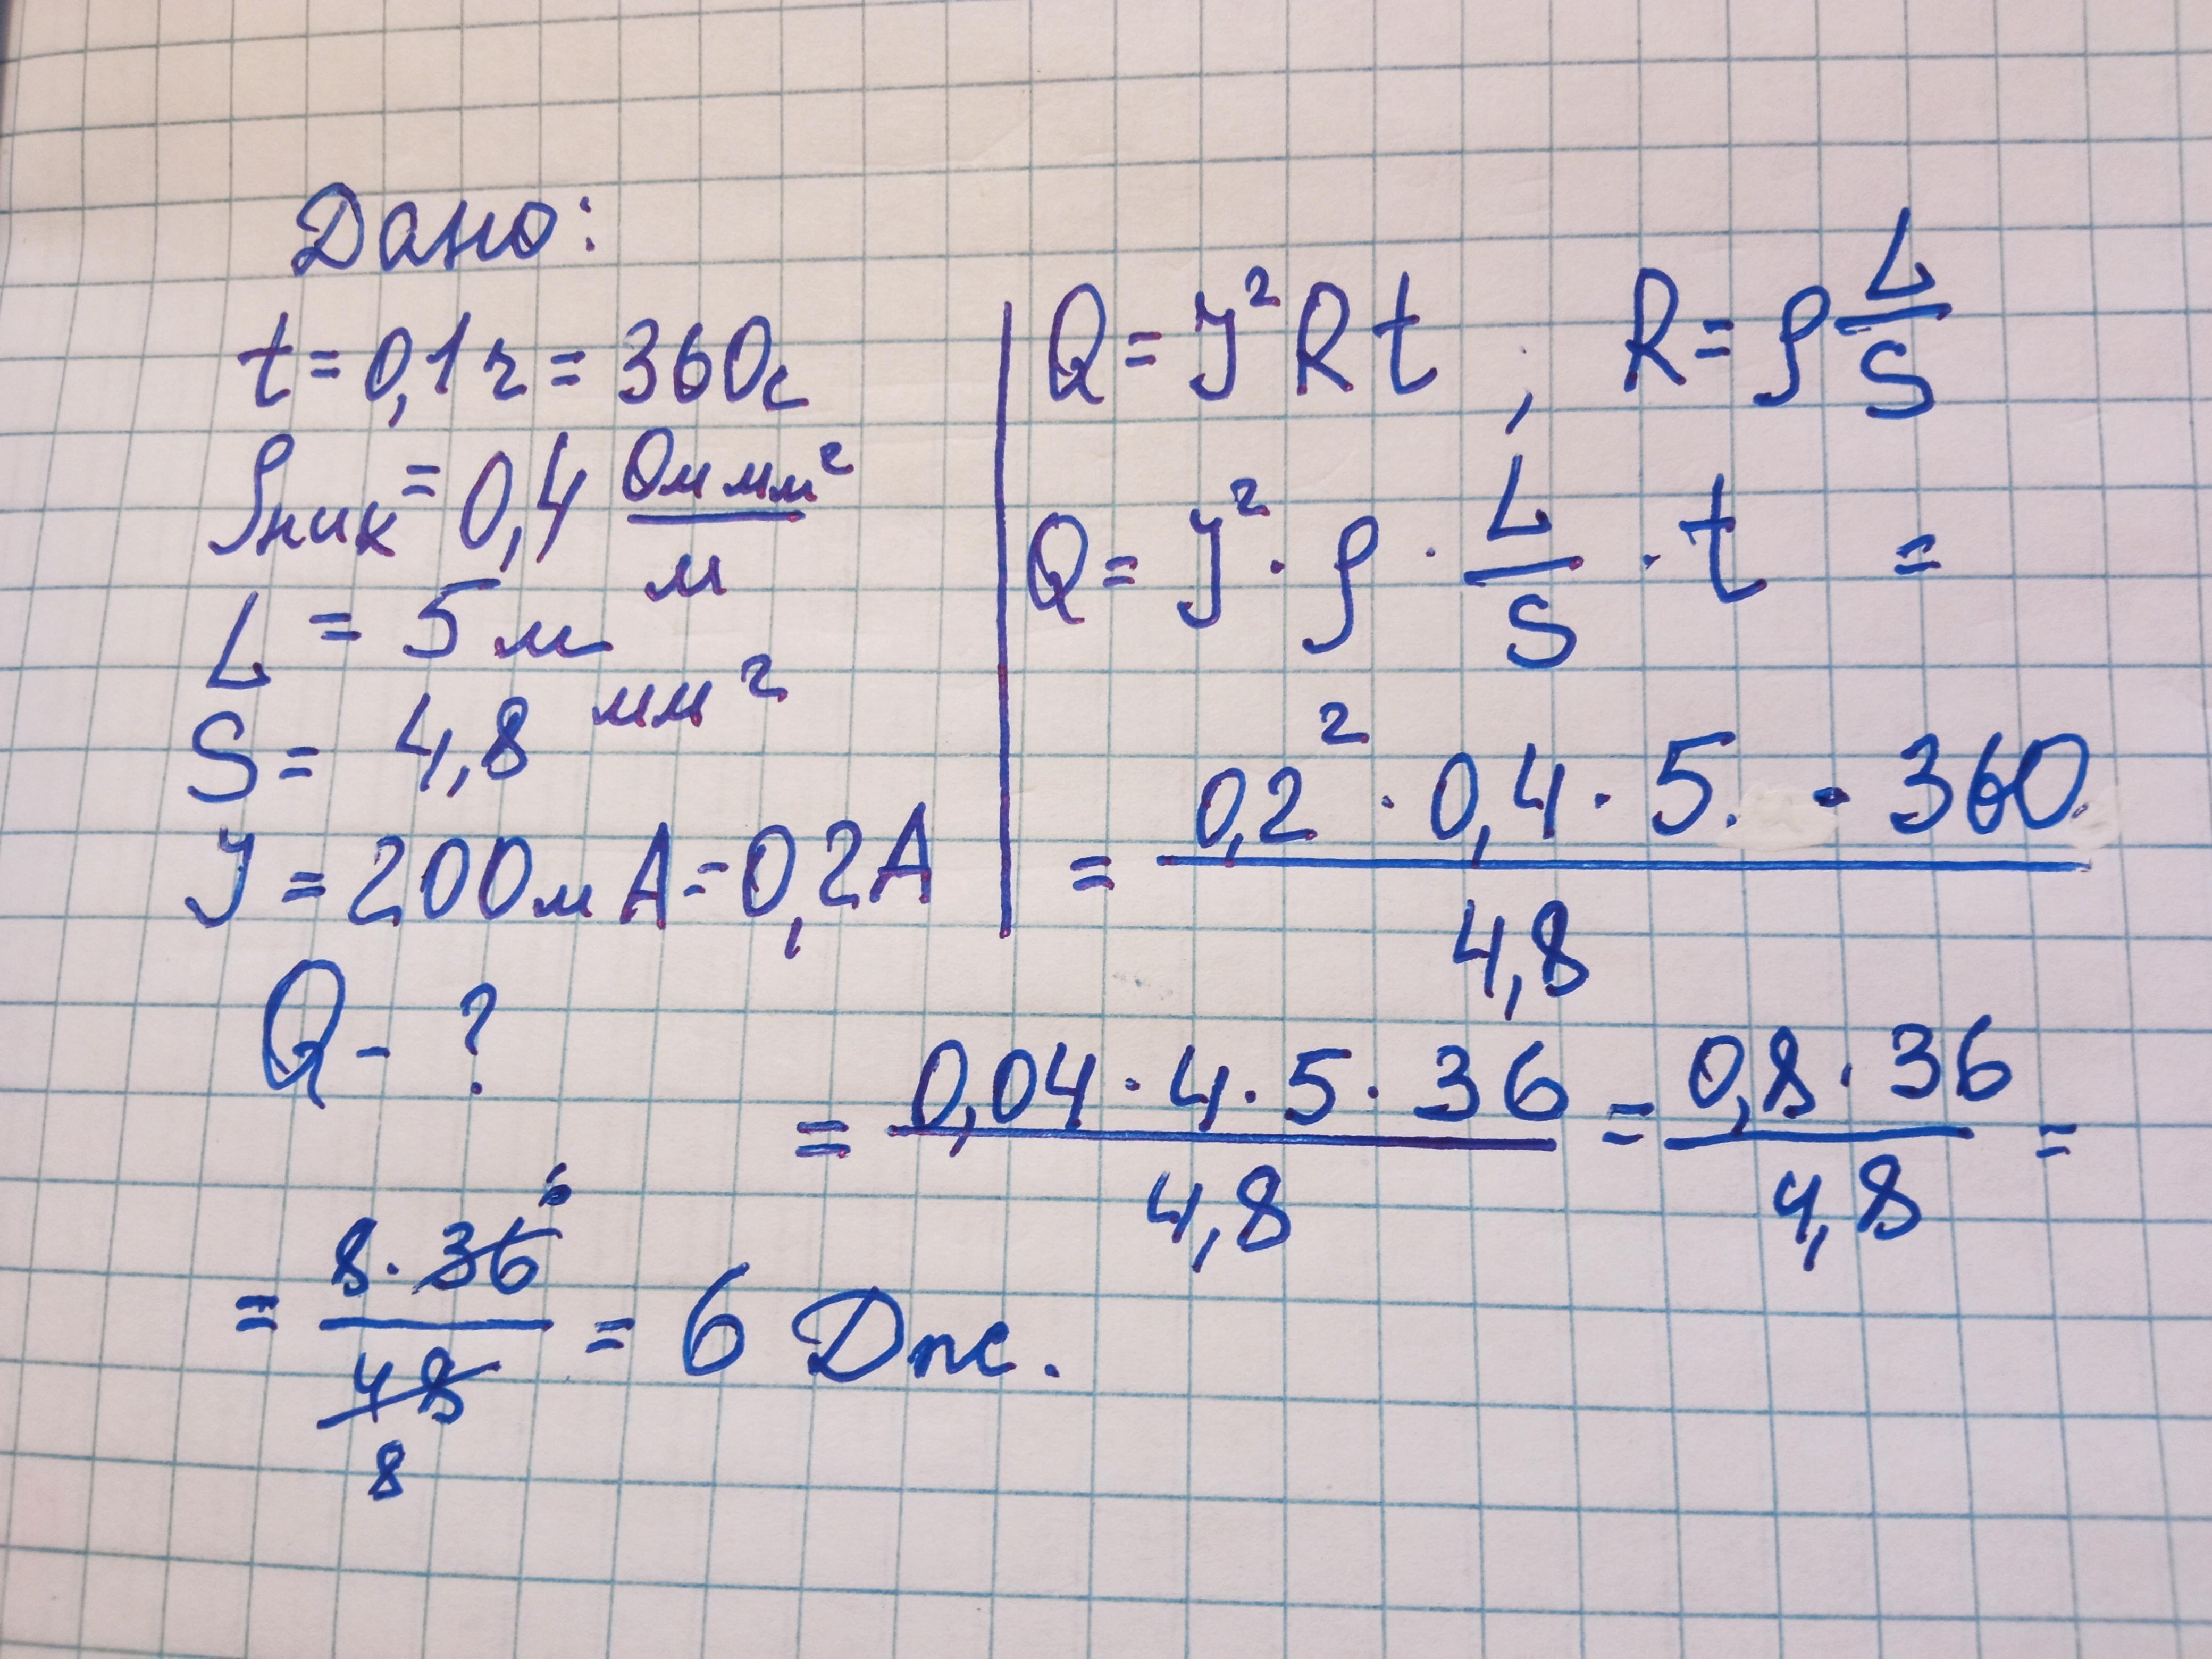 Дано:
t = 0,1 ч = 360 с
ρник = 0,4 Ом мм² / м
L = 5 м
S = 4,8 мм²
J = 200 мА = 0,2 А
Q - ?
Q = J² R t , R = ρ L/S
Q = J² · ρ · L/S · t =
= 0,2² · 0,4 · 5 · 360 / 4,8
= 0,04 · 4 · 5 · 36 / 4,8 = 0,8 · 36 / 4,8 =
= 8 · 36 6 / 48 8 = 6 Дж.